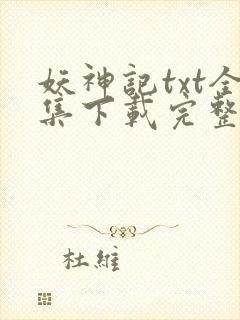 妖神記txt全
集下載完整
杜維